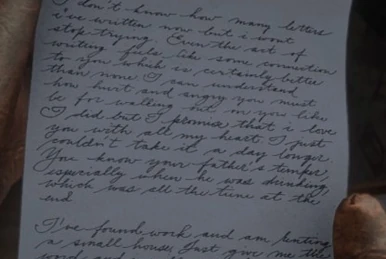 I don't know how many letters
I've written now but i wont
stop trying. Even the act of
writing feels like some connection
to you which is certainly better
than none I can understand
how hurt and angry you must
be for walking out on you like
I did but I promise that i love
you with all my heart I just
couldn't take it a day longer.
You know your father's temper,
especially when he was drinking,
which was all the time at the
end
I've found work and am renting
a small house. Just give me the
word and